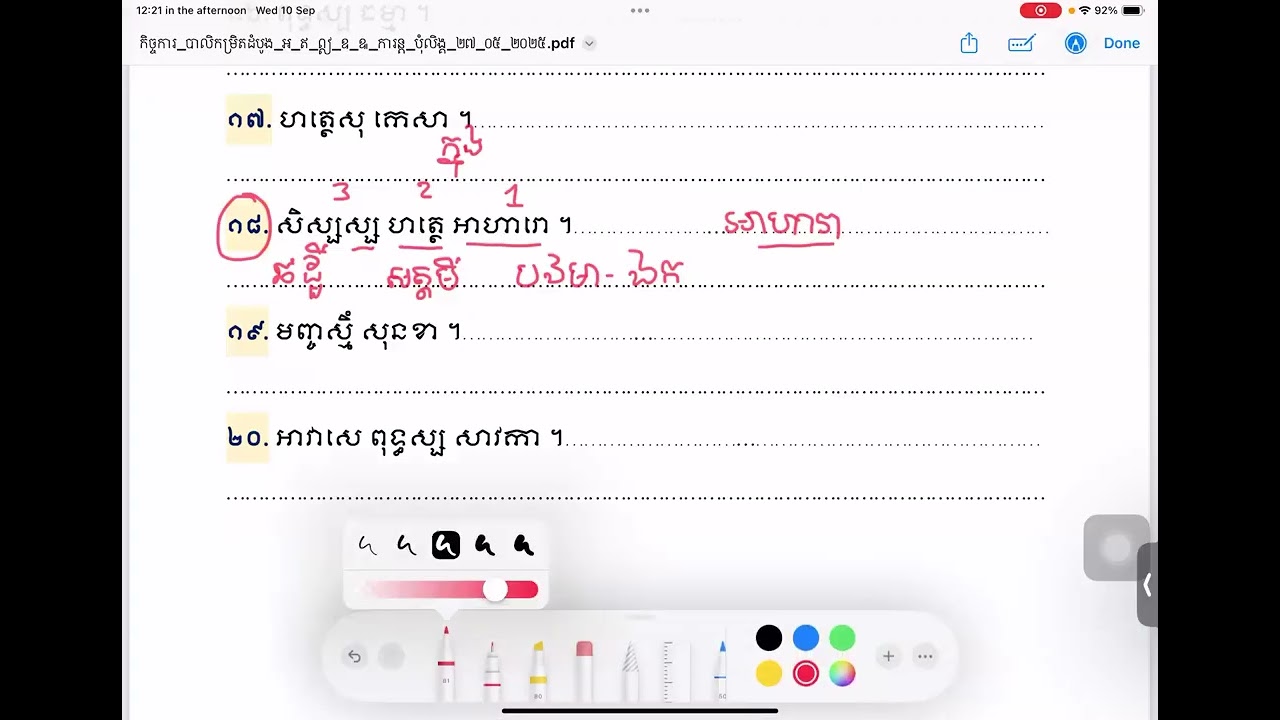 12:21 in the afternoon Wed 10 Sep
92%
កិច្ចការ_បាលិកម្រិតដំបូង_អ_ឥ_ឦ_ឧ_ឩ_ការន្ត_បុំលិង្គ_២៧_០៥_២០២៥.pdf
Done
១៧. ហត្ថេសុ កេសា ។
ក្នុង
3 2 1
១៨. សិស្សស្ស ហត្ថេ អាហារោ ។ អាហារា
ឆដ្ឋី សត្តមី បឋមា - ឯក
១៩. មញ្ចស្មិំ សុនខា ។
២០. អាវាសេ ពុទ្ធស្ស សាវកា ។